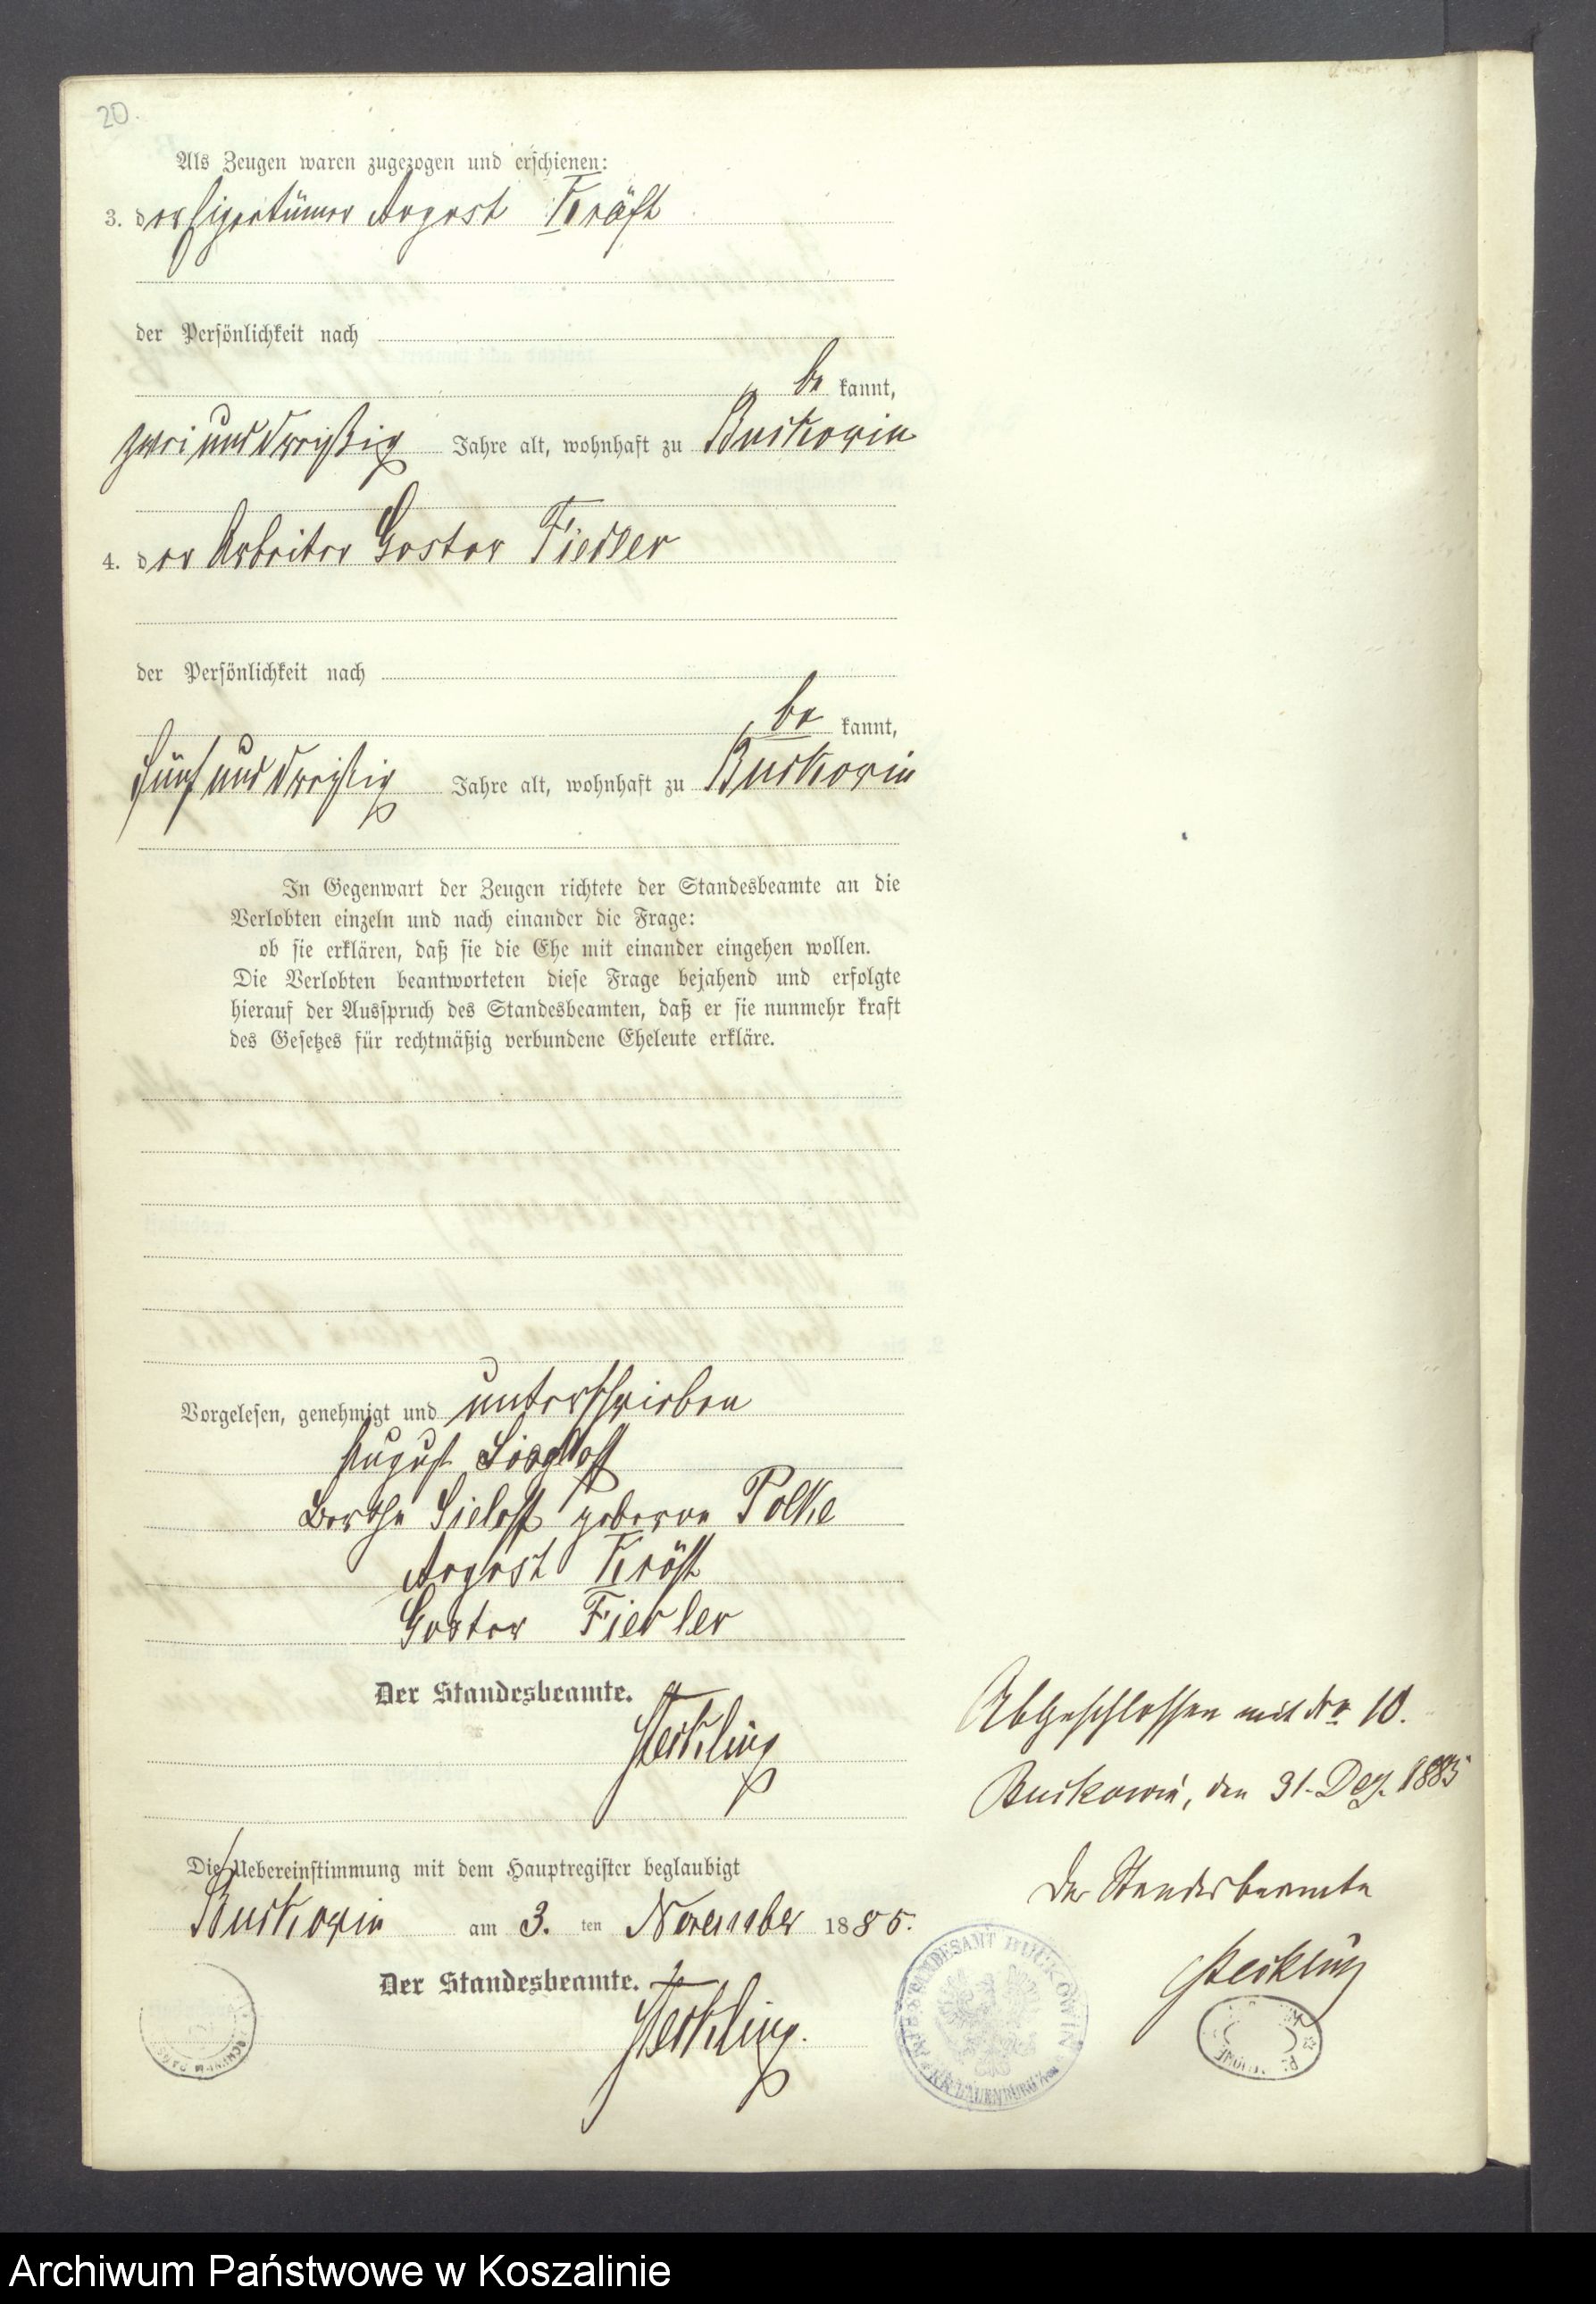 20.
Als Zeugen waren zugezogen und erschienen:
3. der Eigentümer August Kräft
der Persönlichkeit nach
be kannt,
zwei und dreißig Jahre alt, wohnhaft zu Buckowin
4. der Arbeiter Gustav Fiedler
der Persönlichkeit nach
be kannt,
fünf und dreißig Jahre alt, wohnhaft zu Buckowin
In Gegenwart der Zeugen richtete der Standesbeamte an die
Verlobten einzeln und nach einander die Frage:
ob sie erklären, daß sie die Ehe mit einander eingehen wollen.
Die Verlobten beantworteten diese Frage bejahend und erfolgte
hierauf der Ausspruch des Standesbeamten, daß er sie nunmehr kraft
des Gesetzes für rechtmäßig verbundene Eheleute erkläre.
Vorgelesen, genehmigt und unterschrieben
August
Bertha Sieloff geborne Polke
August Kräft
Gustav Fiedler
Der Standesbeamte.
Steckling
Abgeschlossen mit No 10.
Buckowin, den 31. Dez. 1885
Der Standesbeamte
Steckling
Die Uebereinstimmung mit dem Hauptregister beglaubigt
Buckowin am 3. ten November 1885.
Der Standesbeamte.
Steckling.
STANDESAMT BUCKOWIN
KR. LAUENBURG
Archiwum Państwowe w Koszalinie